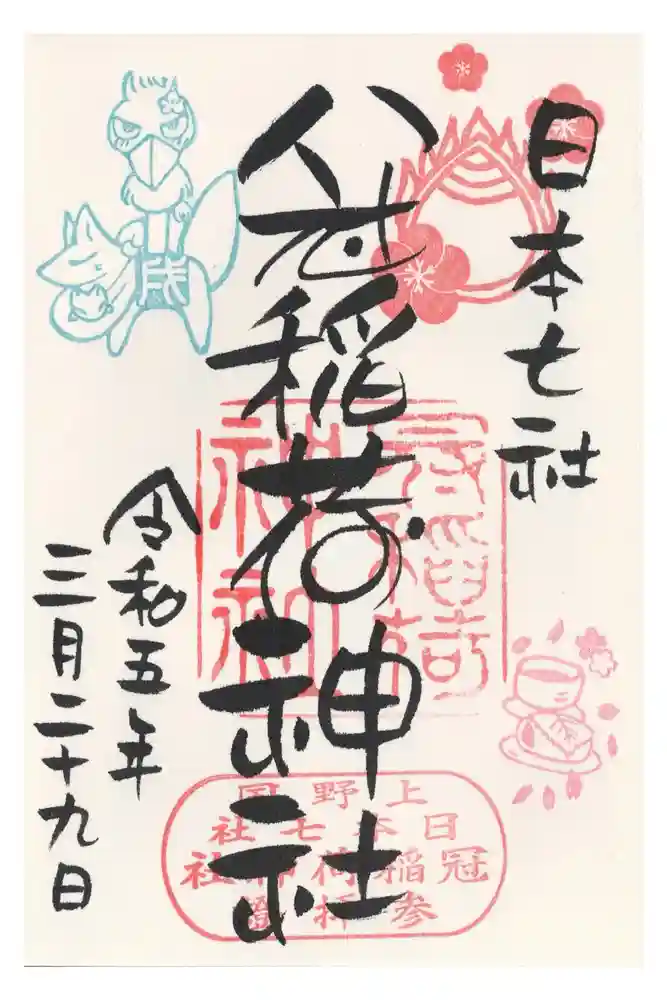 日本七社
冠稲荷神社
令和五年
三月二十九日
冠稲荷
神社
上野国
日本七社
冠稲荷神社
参拝